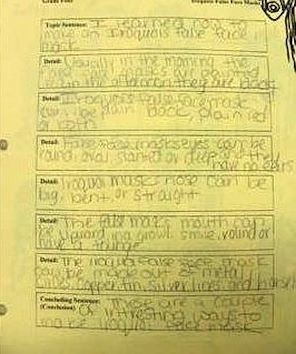 Grade Four Iroquois False Face Masks
Topic Sentence: I learned how to
make an Iroquois false face
mask
Detail: Usually in the morning the
masks are painted
red in the afternoon they are black
Detail: Iroquois false face mask
can be plain black, plain red
or both
Detail: False face masks eyes can be
round, oval, slanted or deep
have no
Detail: Iroquoi masks nose can be
big, bent or straight
Detail: The false mask mouth can
be upward in a growl, smile, round or
have a tounge
Detail: The Iroquoi false face mask
could be made out of metal
copper, tin, silver
Concluding Sentence: These are a couple
(Conclusion) Of intresting ways to
make Iroquoi face mask